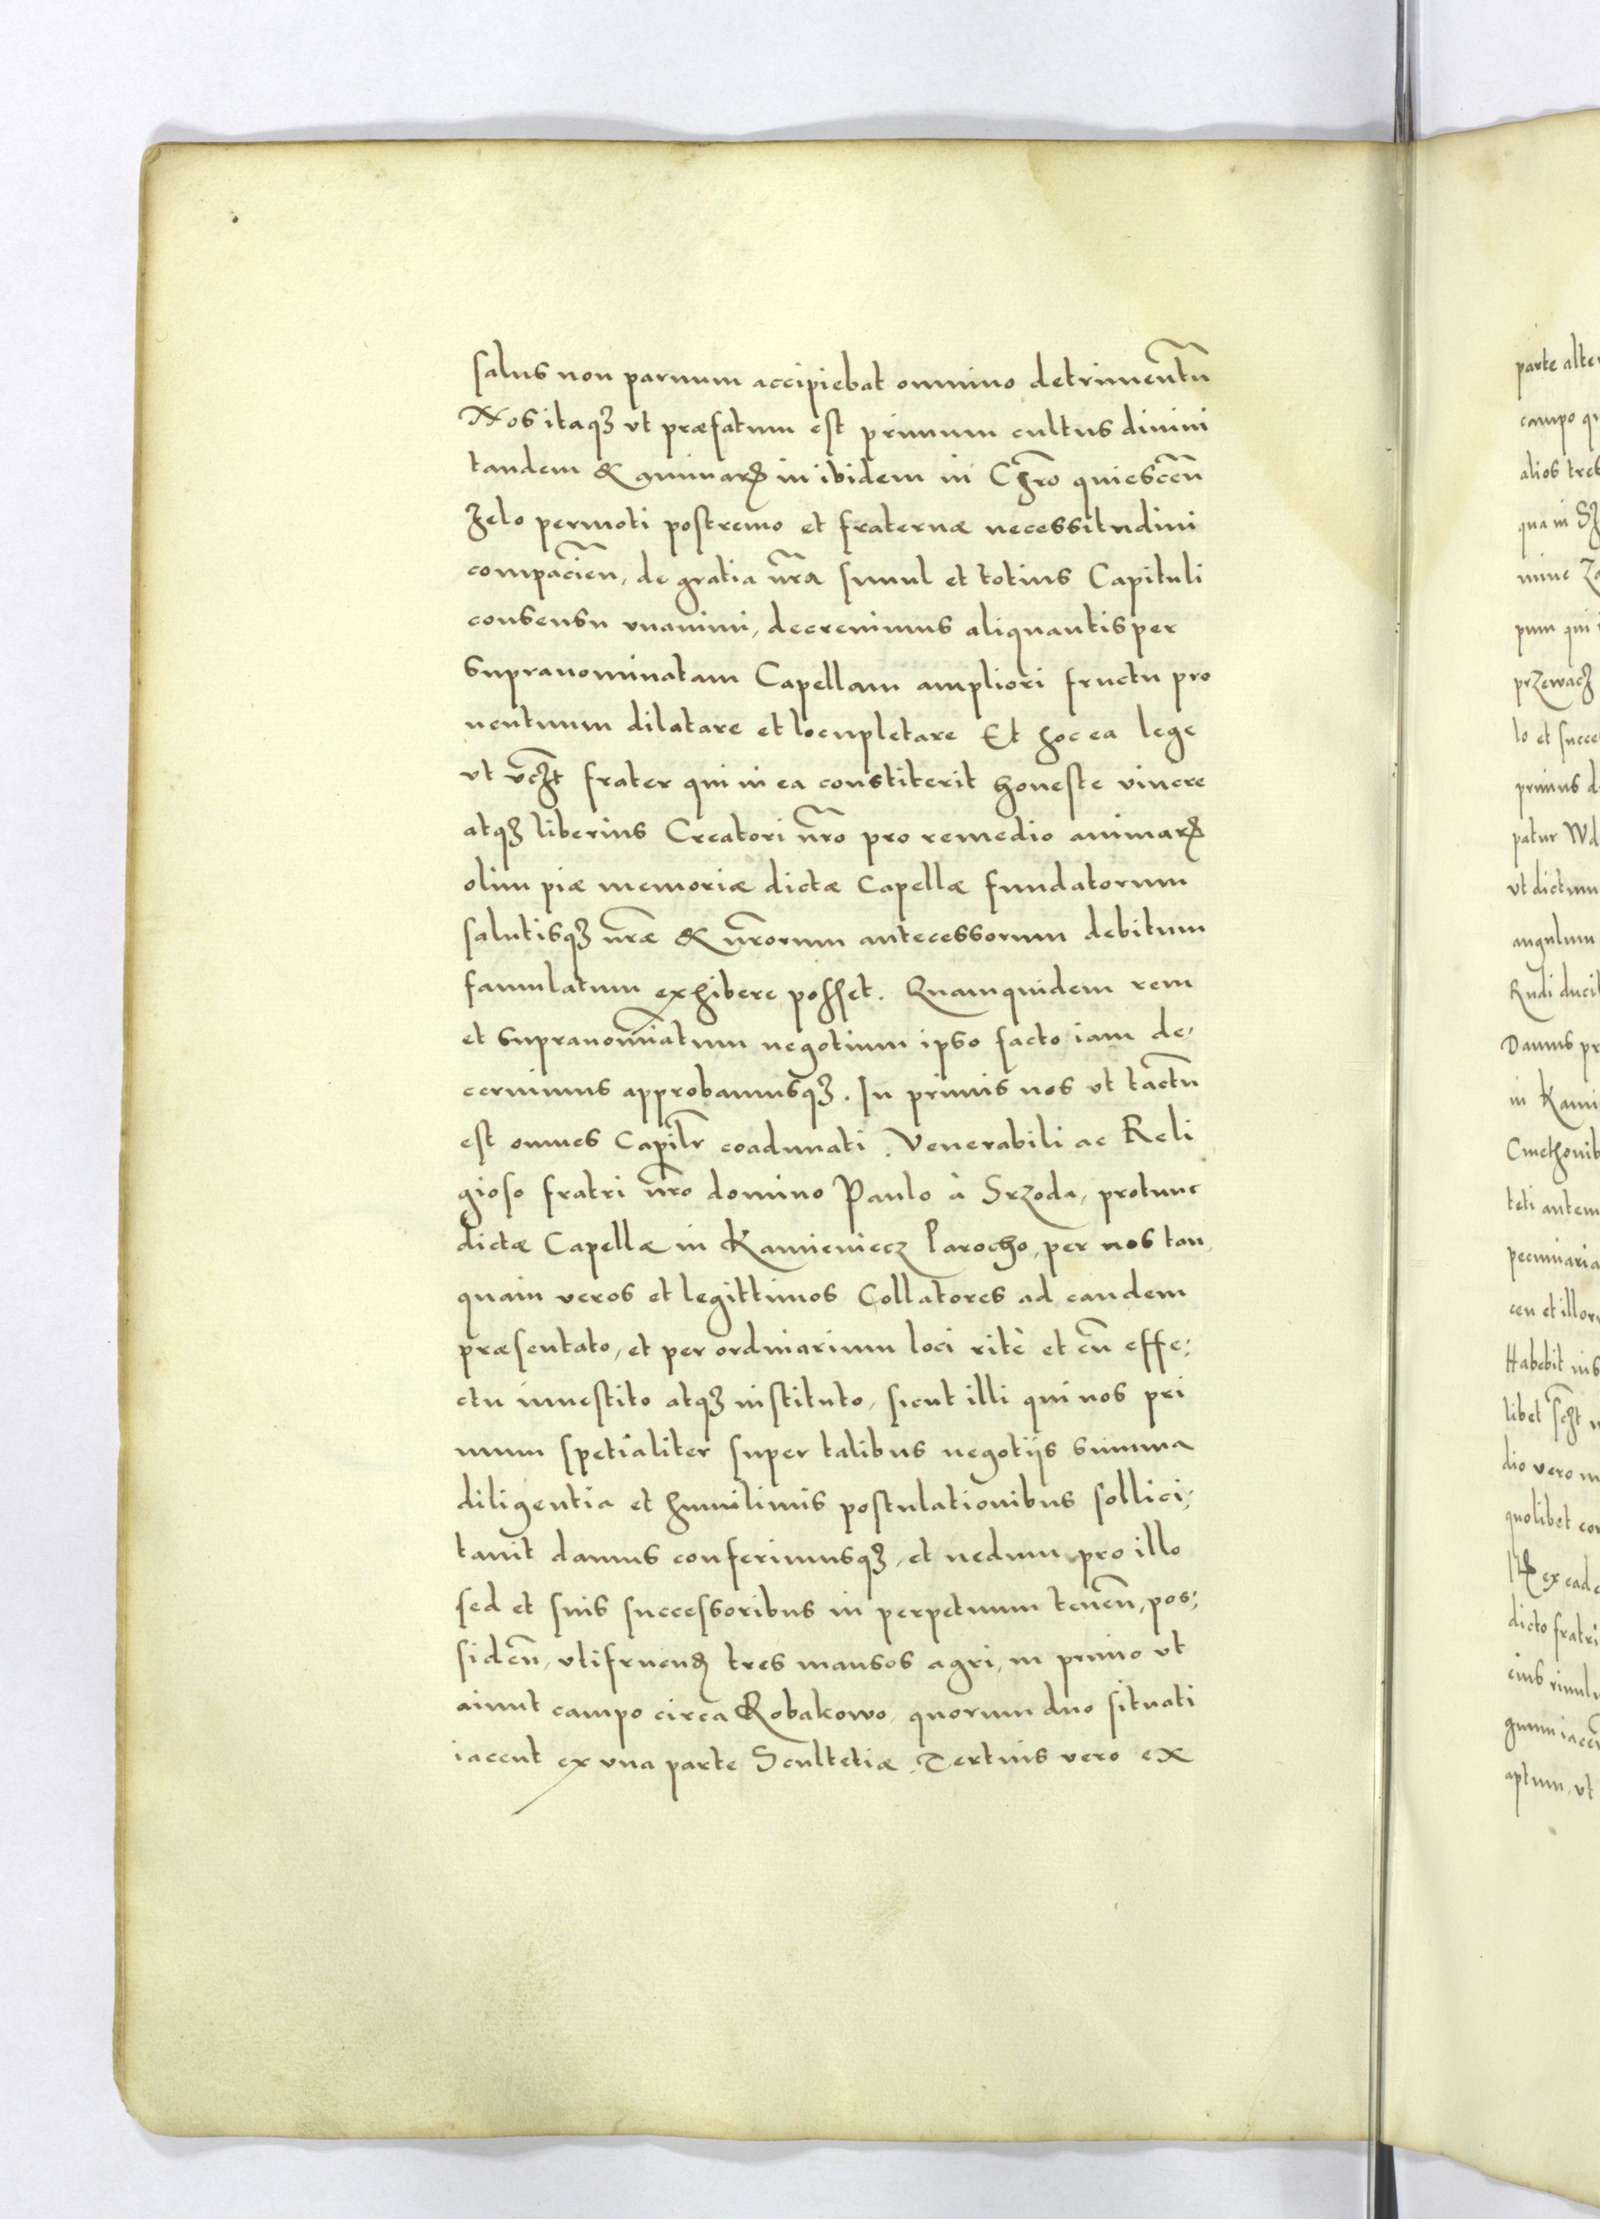 salus non paruum accipiebat omnino detrimentū
Nos itaqȝ vt præfatum est primum cultus diuini
tandem & animarꝝ in ibidem in Chr̄o quiescen̄
zelo permoti postremo et fraternæ necessitudini
compacien̄, de gratia nr̄a simul et totius Capituli
consensu vnanimi, decreuimus aliquantisper
supranominatam Capellam ampliori fructu pro
uentuum dilatare et locupletare Et hoc ea lege
vt frater qui in ea constiterit honeste viuere
atqȝ liberius Creatori nr̄o pro remedio animarꝝ
olim piæ memoriæ dictæ Capellæ fundatorum
salutisqȝ nr̄æ & nr̄orum antecessorum debitum
famulatum exhibere posset. Quamquidem rem
et supranomīatum negotium ipso facto iam de-
cernimus approbamusqȝ. In primis nos vt tactū
est omnes Capitlr̄ coadunati. Venerabili ac Reli
gioso fratri nr̄o domino Paulo à Srzoda, protunc
dictæ Capellæ in Kamieniecz Parocho, per nos tan
quam veros et legittimos Collatores ad eandem
præsentato, et per ordinarium loci ritè et cū effe-
ctu inuestito atqȝ instituto, sicut illi qui nos pri
mum spetialiter super talibus negotijs summa
diligentia et humilimis postulationibus sollici-
tauit damus conferimusqȝ, et nedum pro illo
sed et suis successoribus in perpetuum tenen̄, pos-
siden̄, vtifruenḍ tres mansos agri, in primo vt
aiunt campo circa Robakowo, quorum duo situati
iacent ex vna parte Scultetiæ. Tertius vero ex
parte alte
campo qu
alios tres
qua in
mine
pum qui
przewach
lo et succe
primus d
patur Wd
vt dictum
angulum
Rudi ducit
Damus pr
in Kami
Cmethonib
teti autem
pecuniaria
ceu et illor
Habebit
libet
dio vero
quolibet con
ex ead
dicto fratri
eius riuul
gnum iacen̄
aptum, vt